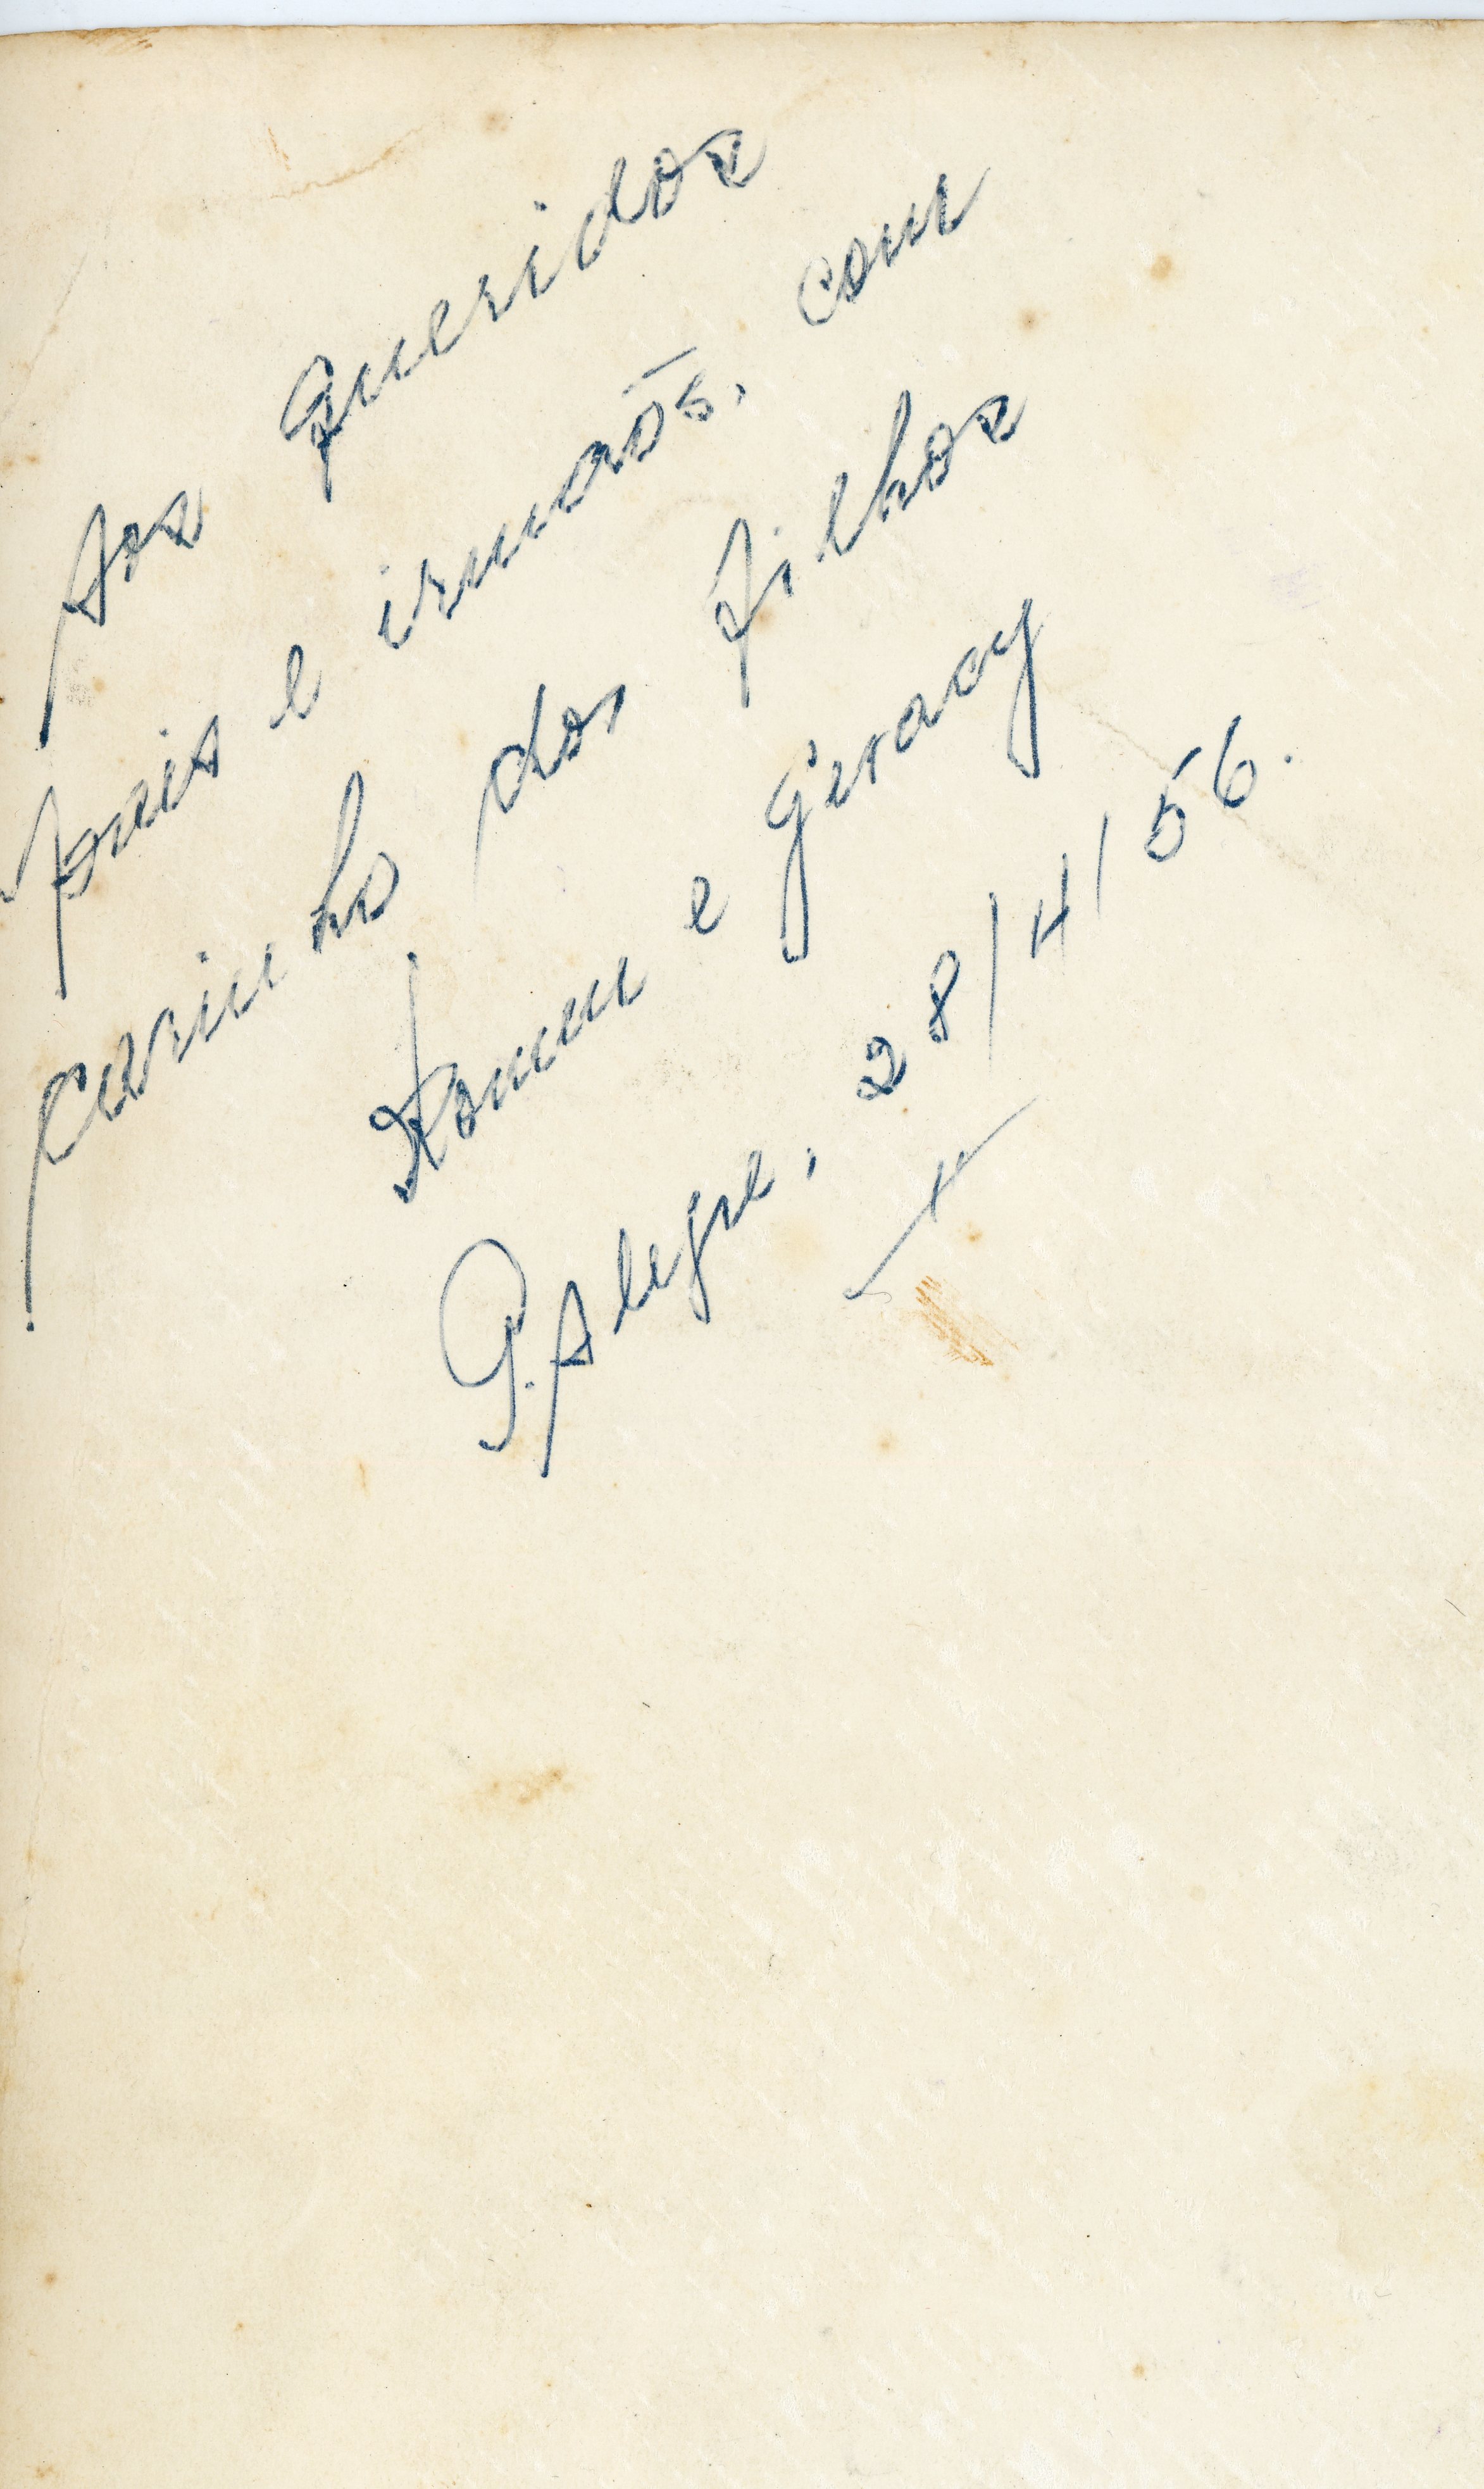 Aos queridos
pais e irmãos, com
carinho dos filhos
e Geracy
P. Alegre, 28/4/56.